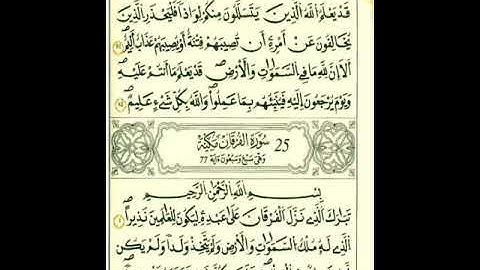 قَدْ يَعْلَمُ اللَّهُ الَّذِينَ يَتَسَلَّلُونَ مِنكُمْ لِوَاذًا فَلْيَحْذَرِ الَّذِينَ
يُخَالِفُونَ عَنْ أَمْرِهِ أَن تُصِيبَهُمْ فِتْنَةٌ أَوْ يُصِيبَهُمْ عَذَابٌ أَلِيمٌ
أَلَا إِنَّ لِلَّهِ مَا فِي السَّمَوَاتِ وَالْأَرْضِ قَدْ يَعْلَمُ مَا أَنتُمْ عَلَيْهِ
وَيَوْمَ يُرْجَعُونَ إِلَيْهِ فَيُنَبِّئُهُم بِمَا عَمِلُوا وَاللَّهُ بِكُلِّ شَيْءٍ عَلِيمٌ
25 سُورَةُ الْفُرْقَانِ مَكِّيَّةٌ
وَهِيَ سَبْعٌ وَسَبْعُونَ ءَايَةً 77
بِسْمِ اللَّهِ الرَّحْمَٰنِ الرَّحِيمِ
تَبَارَكَ الَّذِي نَزَّلَ الْفُرْقَانَ عَلَىٰ عَبْدِهِ لِيَكُونَ لِلْعَالَمِينَ نَذِيرًا
الَّذِي لَهُ مُلْكُ السَّمَوَاتِ وَالْأَرْضِ وَلَمْ يَتَّخِذْ وَلَدًا وَلَمْ يَكُن